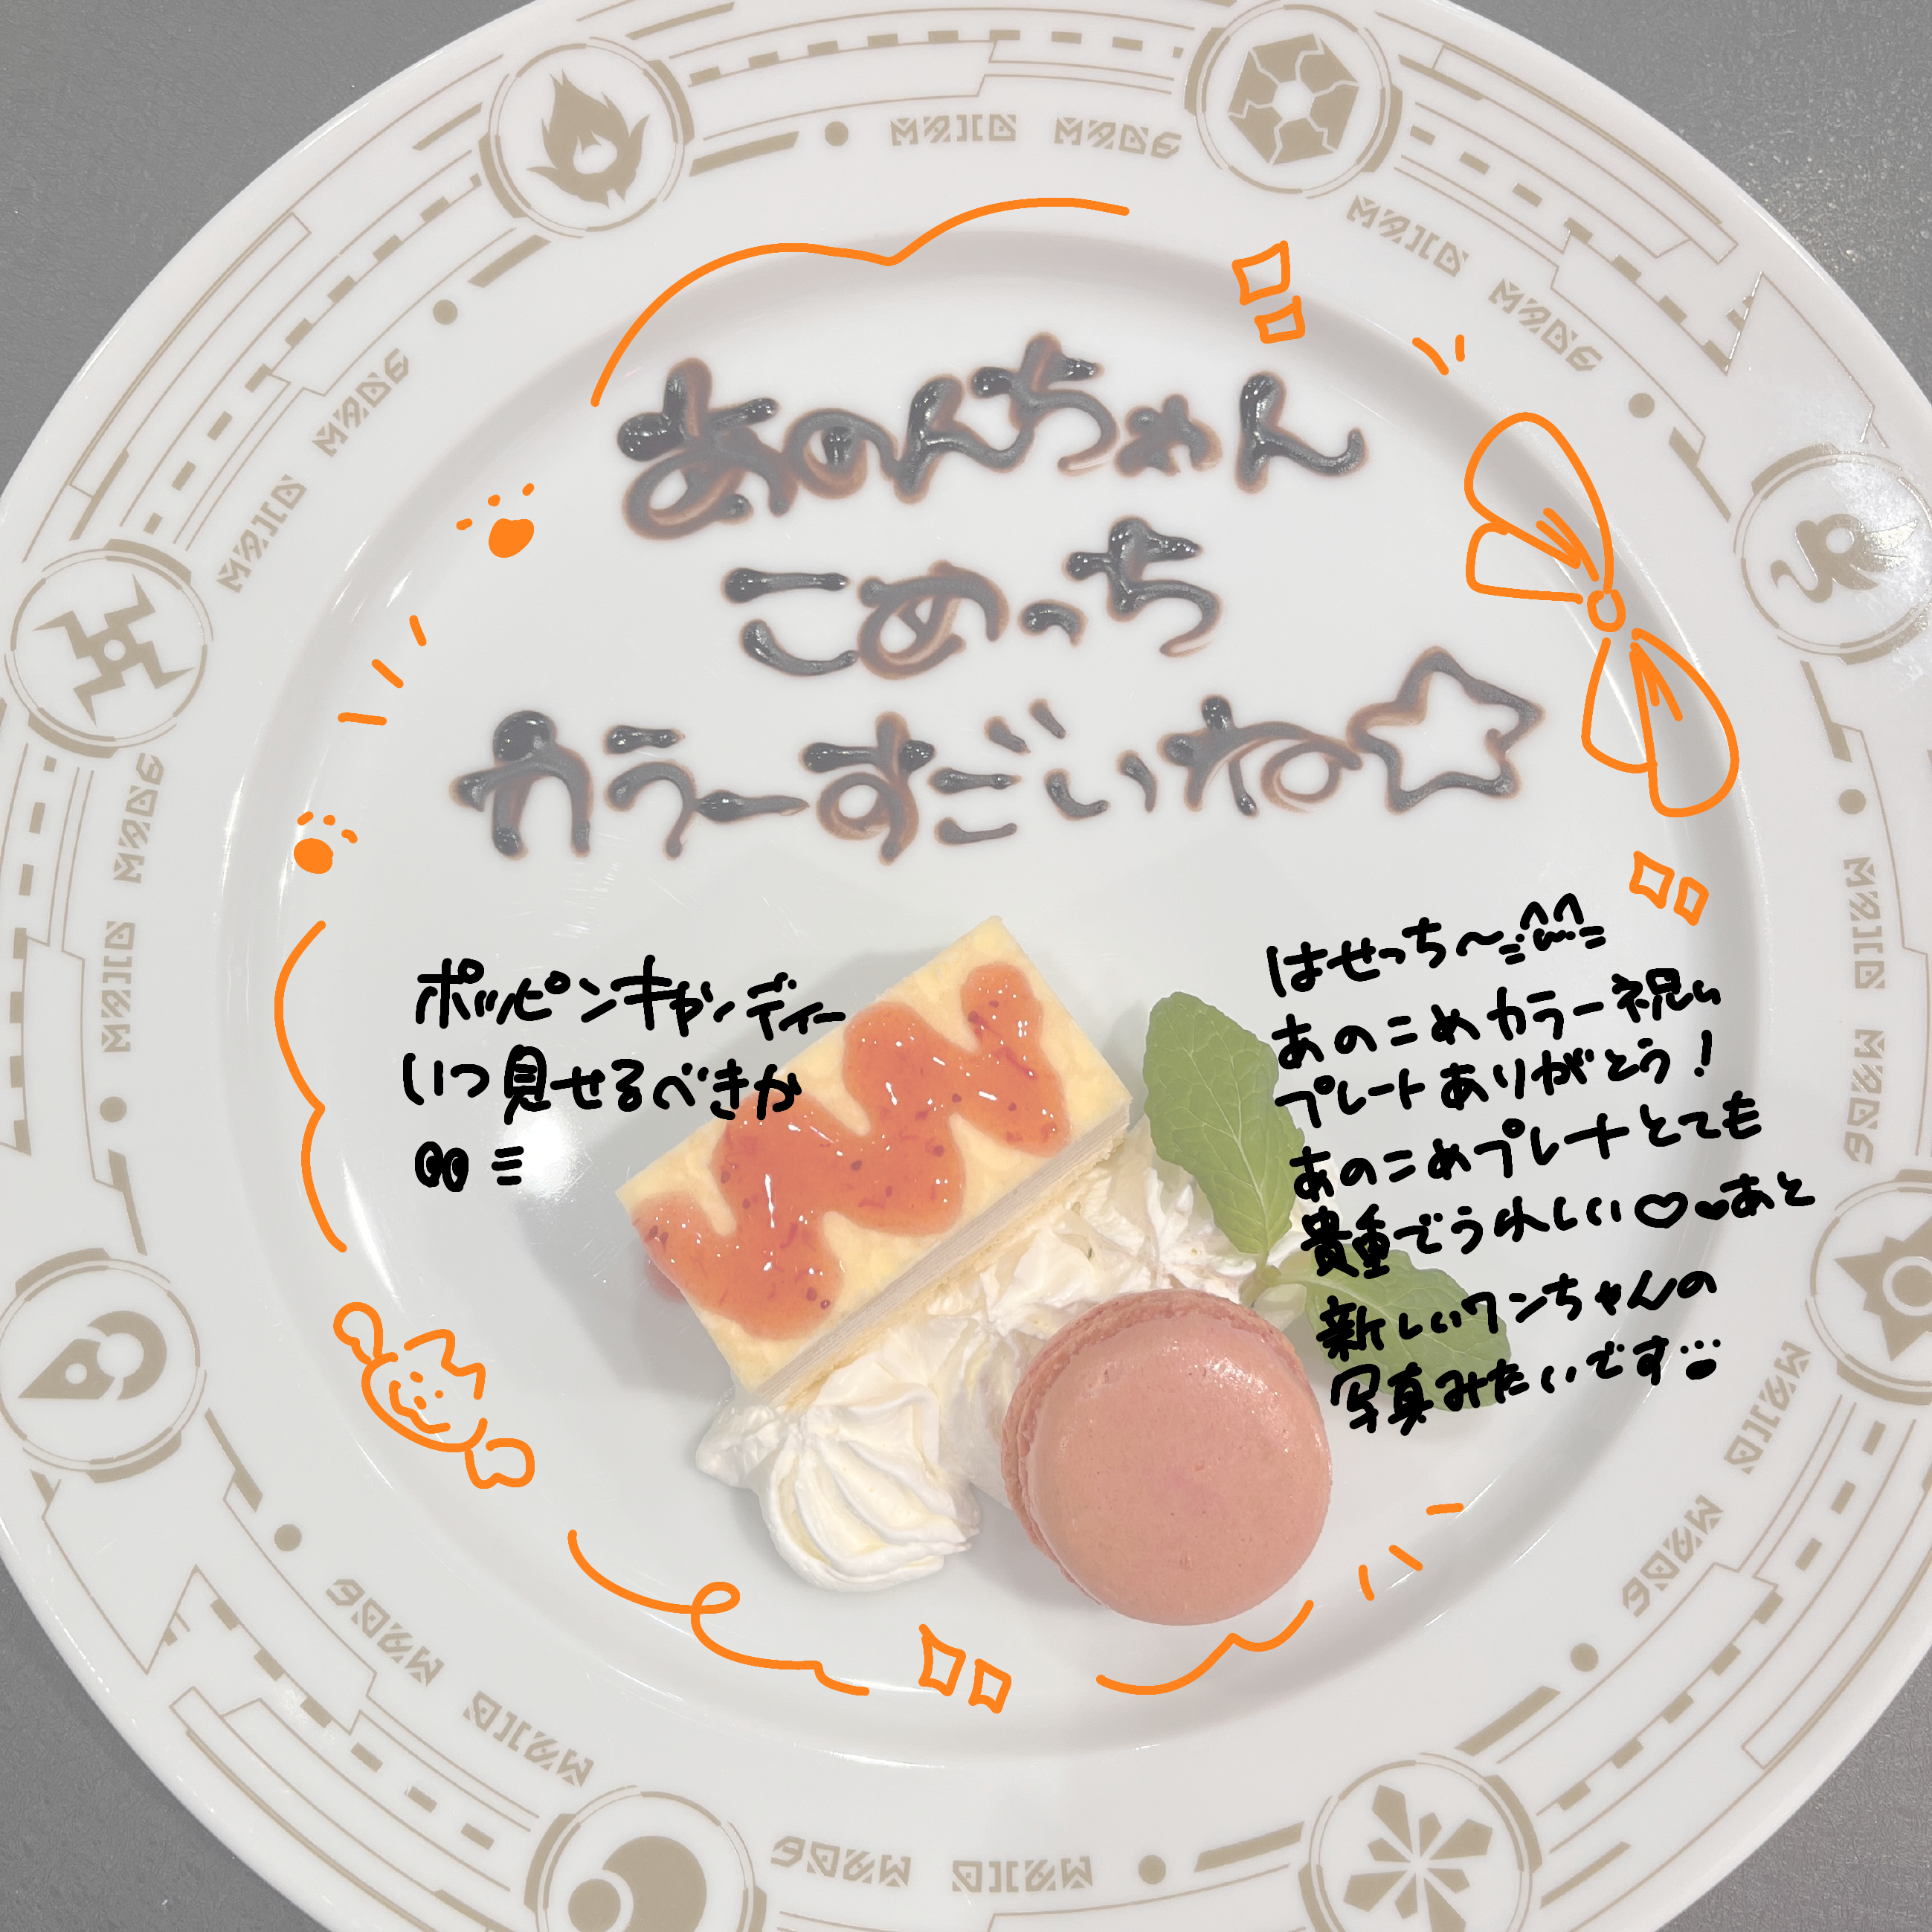 あのんちゃん
こめっち
カラーすごいね☆
ポッピンキャンディー
いつ見せるべきか
はせっち〜
あのこめカラー祝い
プレートありがとう!
あのこめプレートとても
貴重でうれしい♡♥あと
新しいワンちゃんの
写真みたいです
MAID MADE
MAID MADE
MAID MADE
MAID MADE
MAID MADE
MAID MADE
MAID MADE
MAID MADE